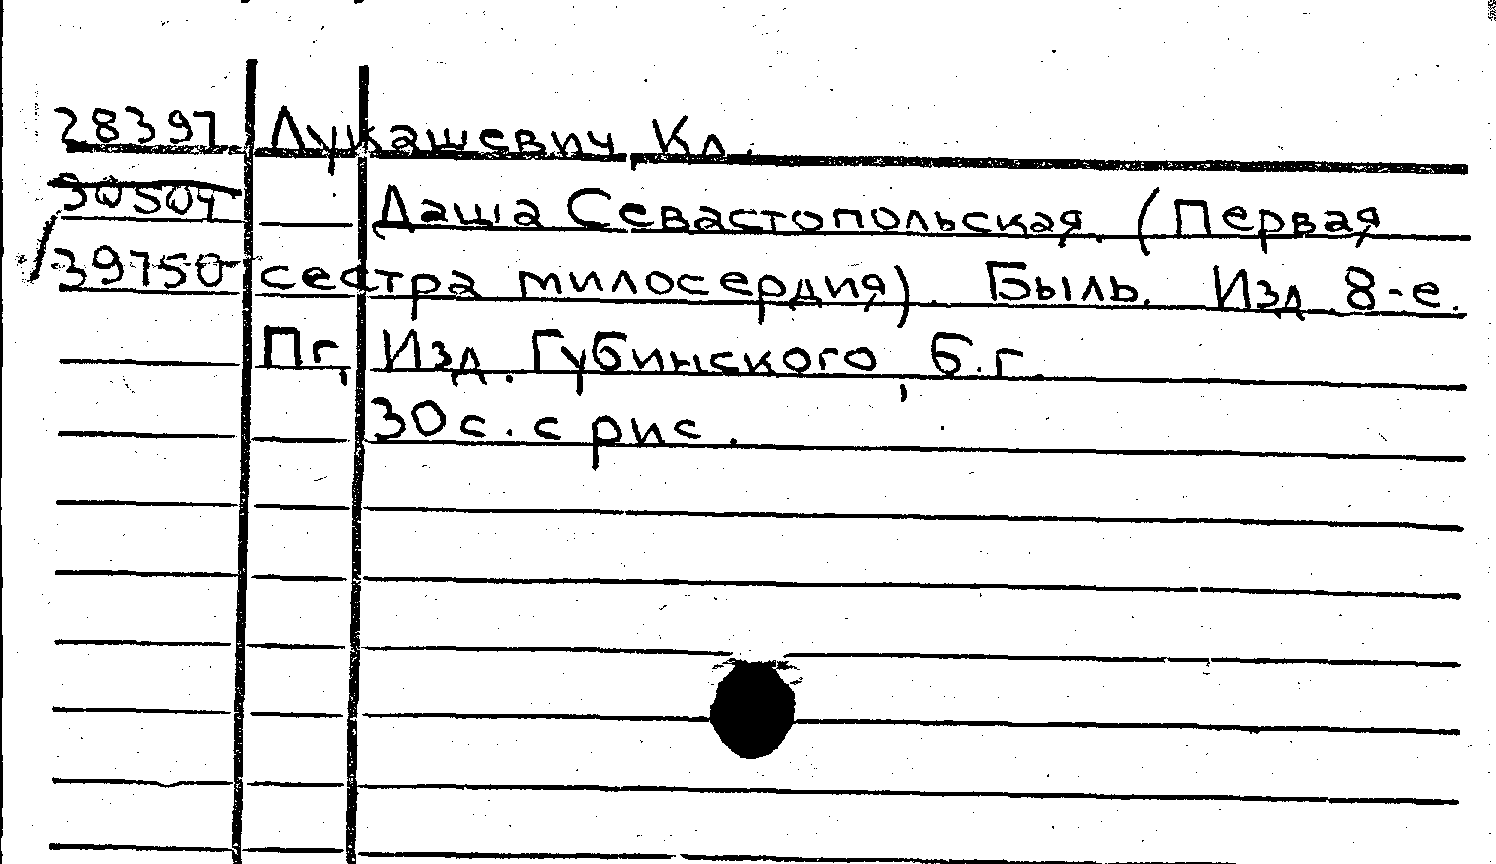 28397 Лукашевич, Кл.
30504 Даша Севастопольская. (Первая
39750 сестра милосердия). Быль. Изд. 8-е.
Пг, Изд. Губинского, б.г.
30с. с рис.